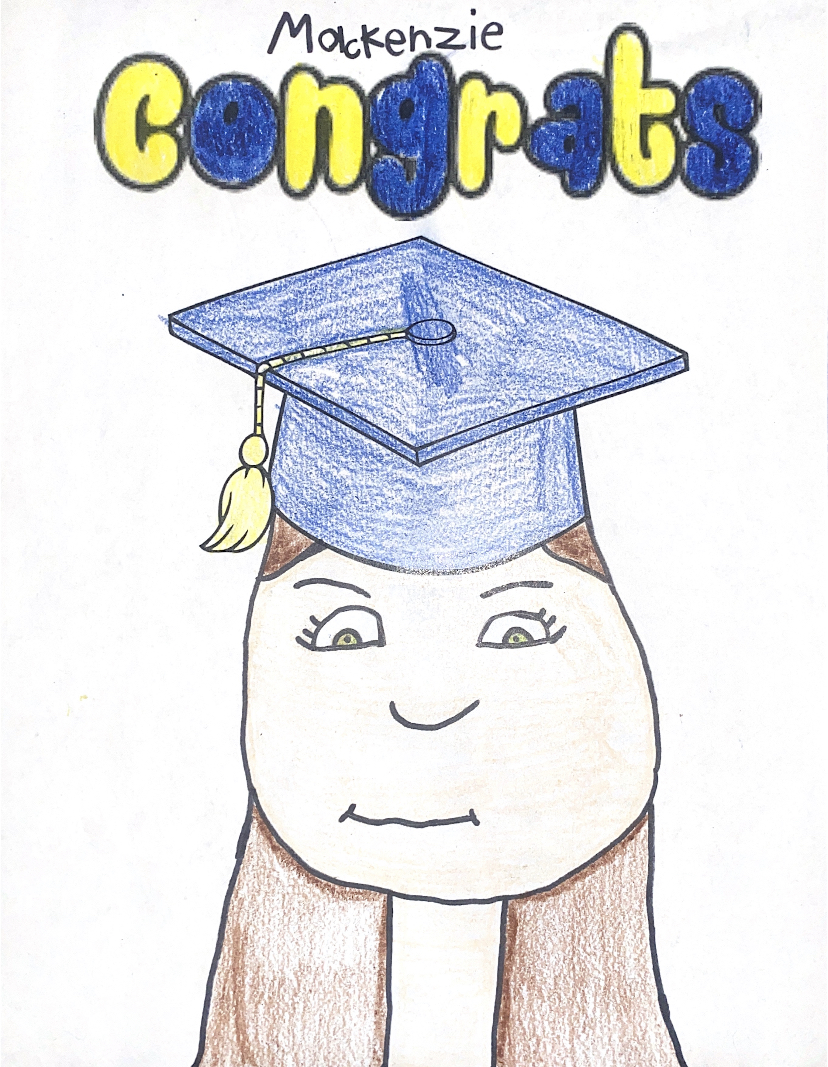 Mackenzie
Congrats